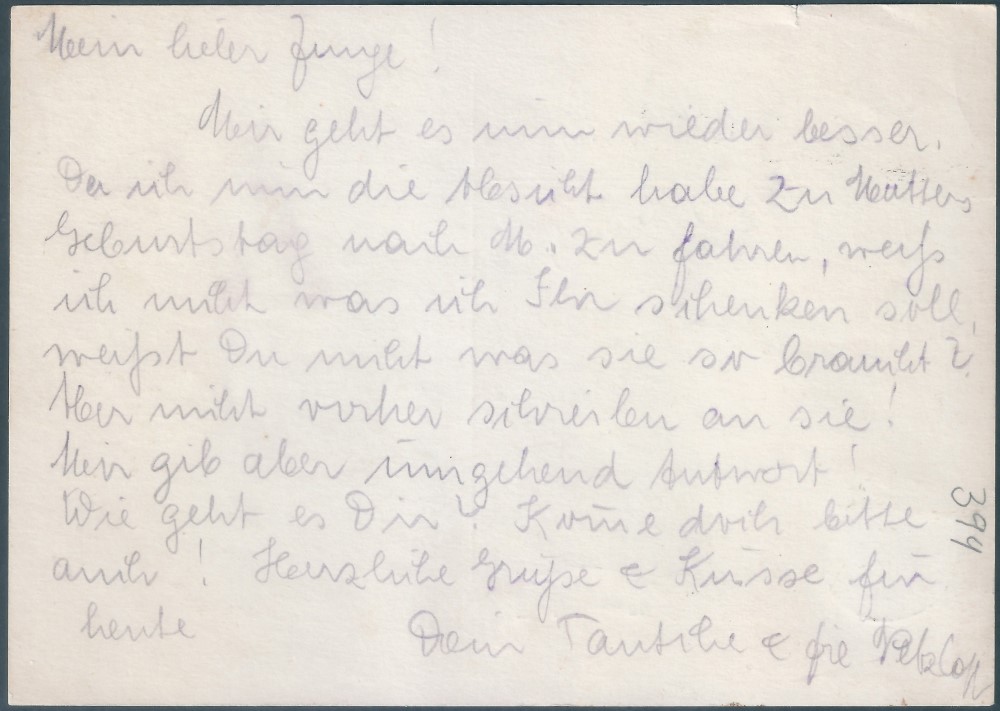 Mein lieber Junge!
Mir geht es nun wieder besser.
Da ich nun die Absicht habe zu Mutters
Geburtstag nach M. zu fahren, weiß
ich nicht was ich Ihr schenken soll,
weißt Du nicht was sie so braucht?
Aber nicht vorher schreiben an sie!
Mir gib aber umgehend Antwort!
Wie geht es Dir? Kom̄e doch bitte
auch! Herzliche Grüße & Küsse für
heute
Dein Tantchen &
394